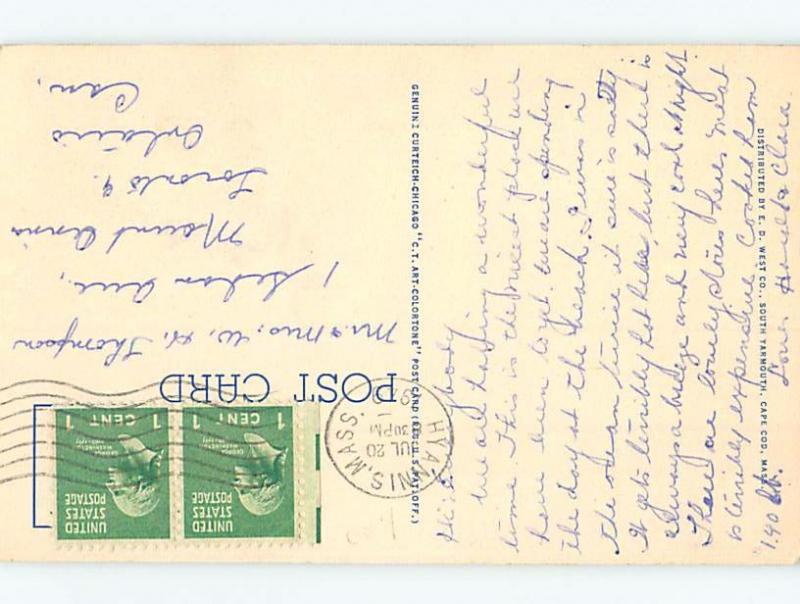 POST CARD
GENUINE CURTEICH-CHICAGO "C.T. ART-COLORTONE" POST CARD (REG. U.S. PAT. OFF.)
DISTRIBUTED BY E. D. WEST CO., SOUTH YARMOUTH, CAPE COD, MASS.
HYANNIS, MASS.
JUL 20
30 PM
19
UNITED
STATES
POSTAGE
1 CENT 1
UNITED
STATES
POSTAGE
1 CENT 1
Mr. & Mrs. W. H. Thompson
1 Ave,
Mount
Toronto 9.
Ontario
Can.
Hi Everybody
We are having a wonderful
time This is the nicest place we
have been to yet. We are spending
the day at the beach. I was in
the ocean twice it sure is salty
It gets terribly hot here, but there is
always a breeze and very cool at night.
There are lovely stores here, meat
is terribly expensive. Cooked ham
1.90 lb. Love Clara.